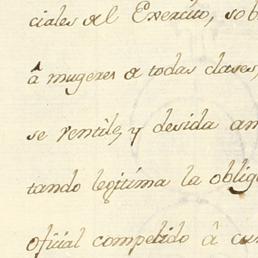 ciales del Exercito, sob
â mugeres de todas clases,
se ventile, y desida an
tando legitima la oblig
oficial competido â cum